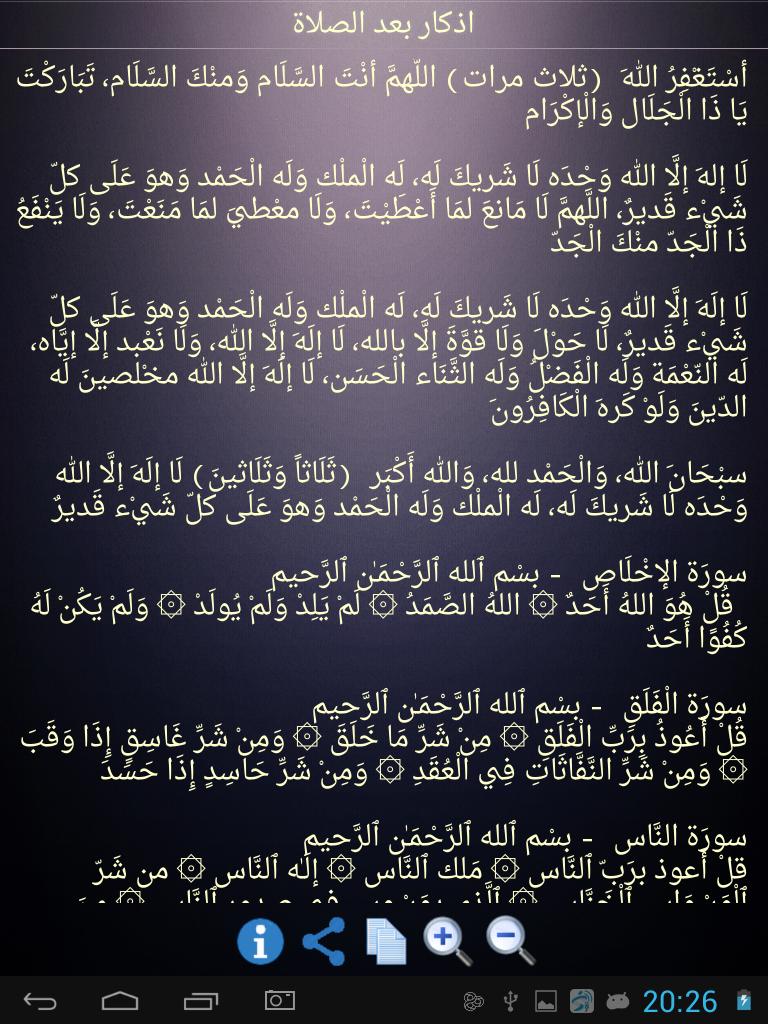 اذكار بعد الصلاة
أسْتَغْفِرُ اللهَ (ثلاث مرات) اللّهمَّ أنْتَ السَّلَام وَمنْكَ السَّلَام، تَبَارَكْتَ
يَا ذَا الْجَلَال وَالْإكْرَام
لَا إلهَ إلَّا الله وَحْدَه لَا شَريكَ لَه، لَه الْملْك وَلَه الْحَمْد وَهوَ عَلَى كلّ
شَيْء قَديرٌ، اللَّهمَّ لَا مَانعَ لمَا أَعْطَيْتَ، وَلَا معْطيَ لمَا مَنَعْتَ، وَلَا يَنْفَعُ
ذَا الْجَدّ منْكَ الْجَدّ
لَا إلَهَ إلَّا الله وَحْدَه لَا شَريكَ لَه، لَه الْملْك وَلَه الْحَمْد وَهوَ عَلَى كلّ
شَيْء قَديرٌ، لَا حَوْلَ وَلَا قوَّةَ إلَّا بالله، لَا إلَهَ إلَّا الله، وَلَا نَعْبد إلَّا إيَّاه،
لَه النّعْمَة وَلَه الْفَضْلُ وَلَه الثَّنَاء الْحَسَن، لَا إلَهَ إلَّا الله مخْلصينَ لَه
الدّينَ وَلَوْ كَرهَ الْكَافِرُونَ
سبْحَانَ الله، وَالْحَمْد لله، وَالله أَكْبَر (ثَلَاثاً وَثَلَاثينَ) لَا إلَهَ إلَّا الله
وَحْدَه لَا شَريكَ لَه، لَه الْملْك وَلَه الْحَمْد وَهوَ عَلَى كلّ شَيْء قَديرٌ
سورَة الإخْلَاص - بسْم ٱلله ٱلرَّحْمَـٰن ٱلرَّحيم
قُلْ هُوَ اللهُ أَحَدٌ ۞ اللهُ الصَّمَدُ ۞ لَمْ يَلِدْ وَلَمْ يُولَدْ ۞ وَلَمْ يَكُنْ لَهُ
كُفُوًا أَحَدٌ
سورَة الْفَلَق - بسْم ٱلله ٱلرَّحْمَـٰن ٱلرَّحيم
قُلْ أَعُوذُ بِرَبِّ الْفَلَقِ ۞ مِنْ شَرِّ مَا خَلَقَ ۞ وَمِنْ شَرِّ غَاسِقٍ إِذَا وَقَبَ
۞ وَمِنْ شَرِّ النَّفَّاثَاتِ فِي الْعُقَدِ ۞ وَمِنْ شَرِّ حَاسِدٍ إِذَا حَسَدَ
سورَة النَّاس - بسْم ٱلله ٱلرَّحْمَـٰن ٱلرَّحيم
قلْ أَعوذ برَبّ ٱلنَّاس ۞ مَلك ٱلنَّاس ۞ إلَٰه ٱلنَّاس ۞ من شَرّ
20:26